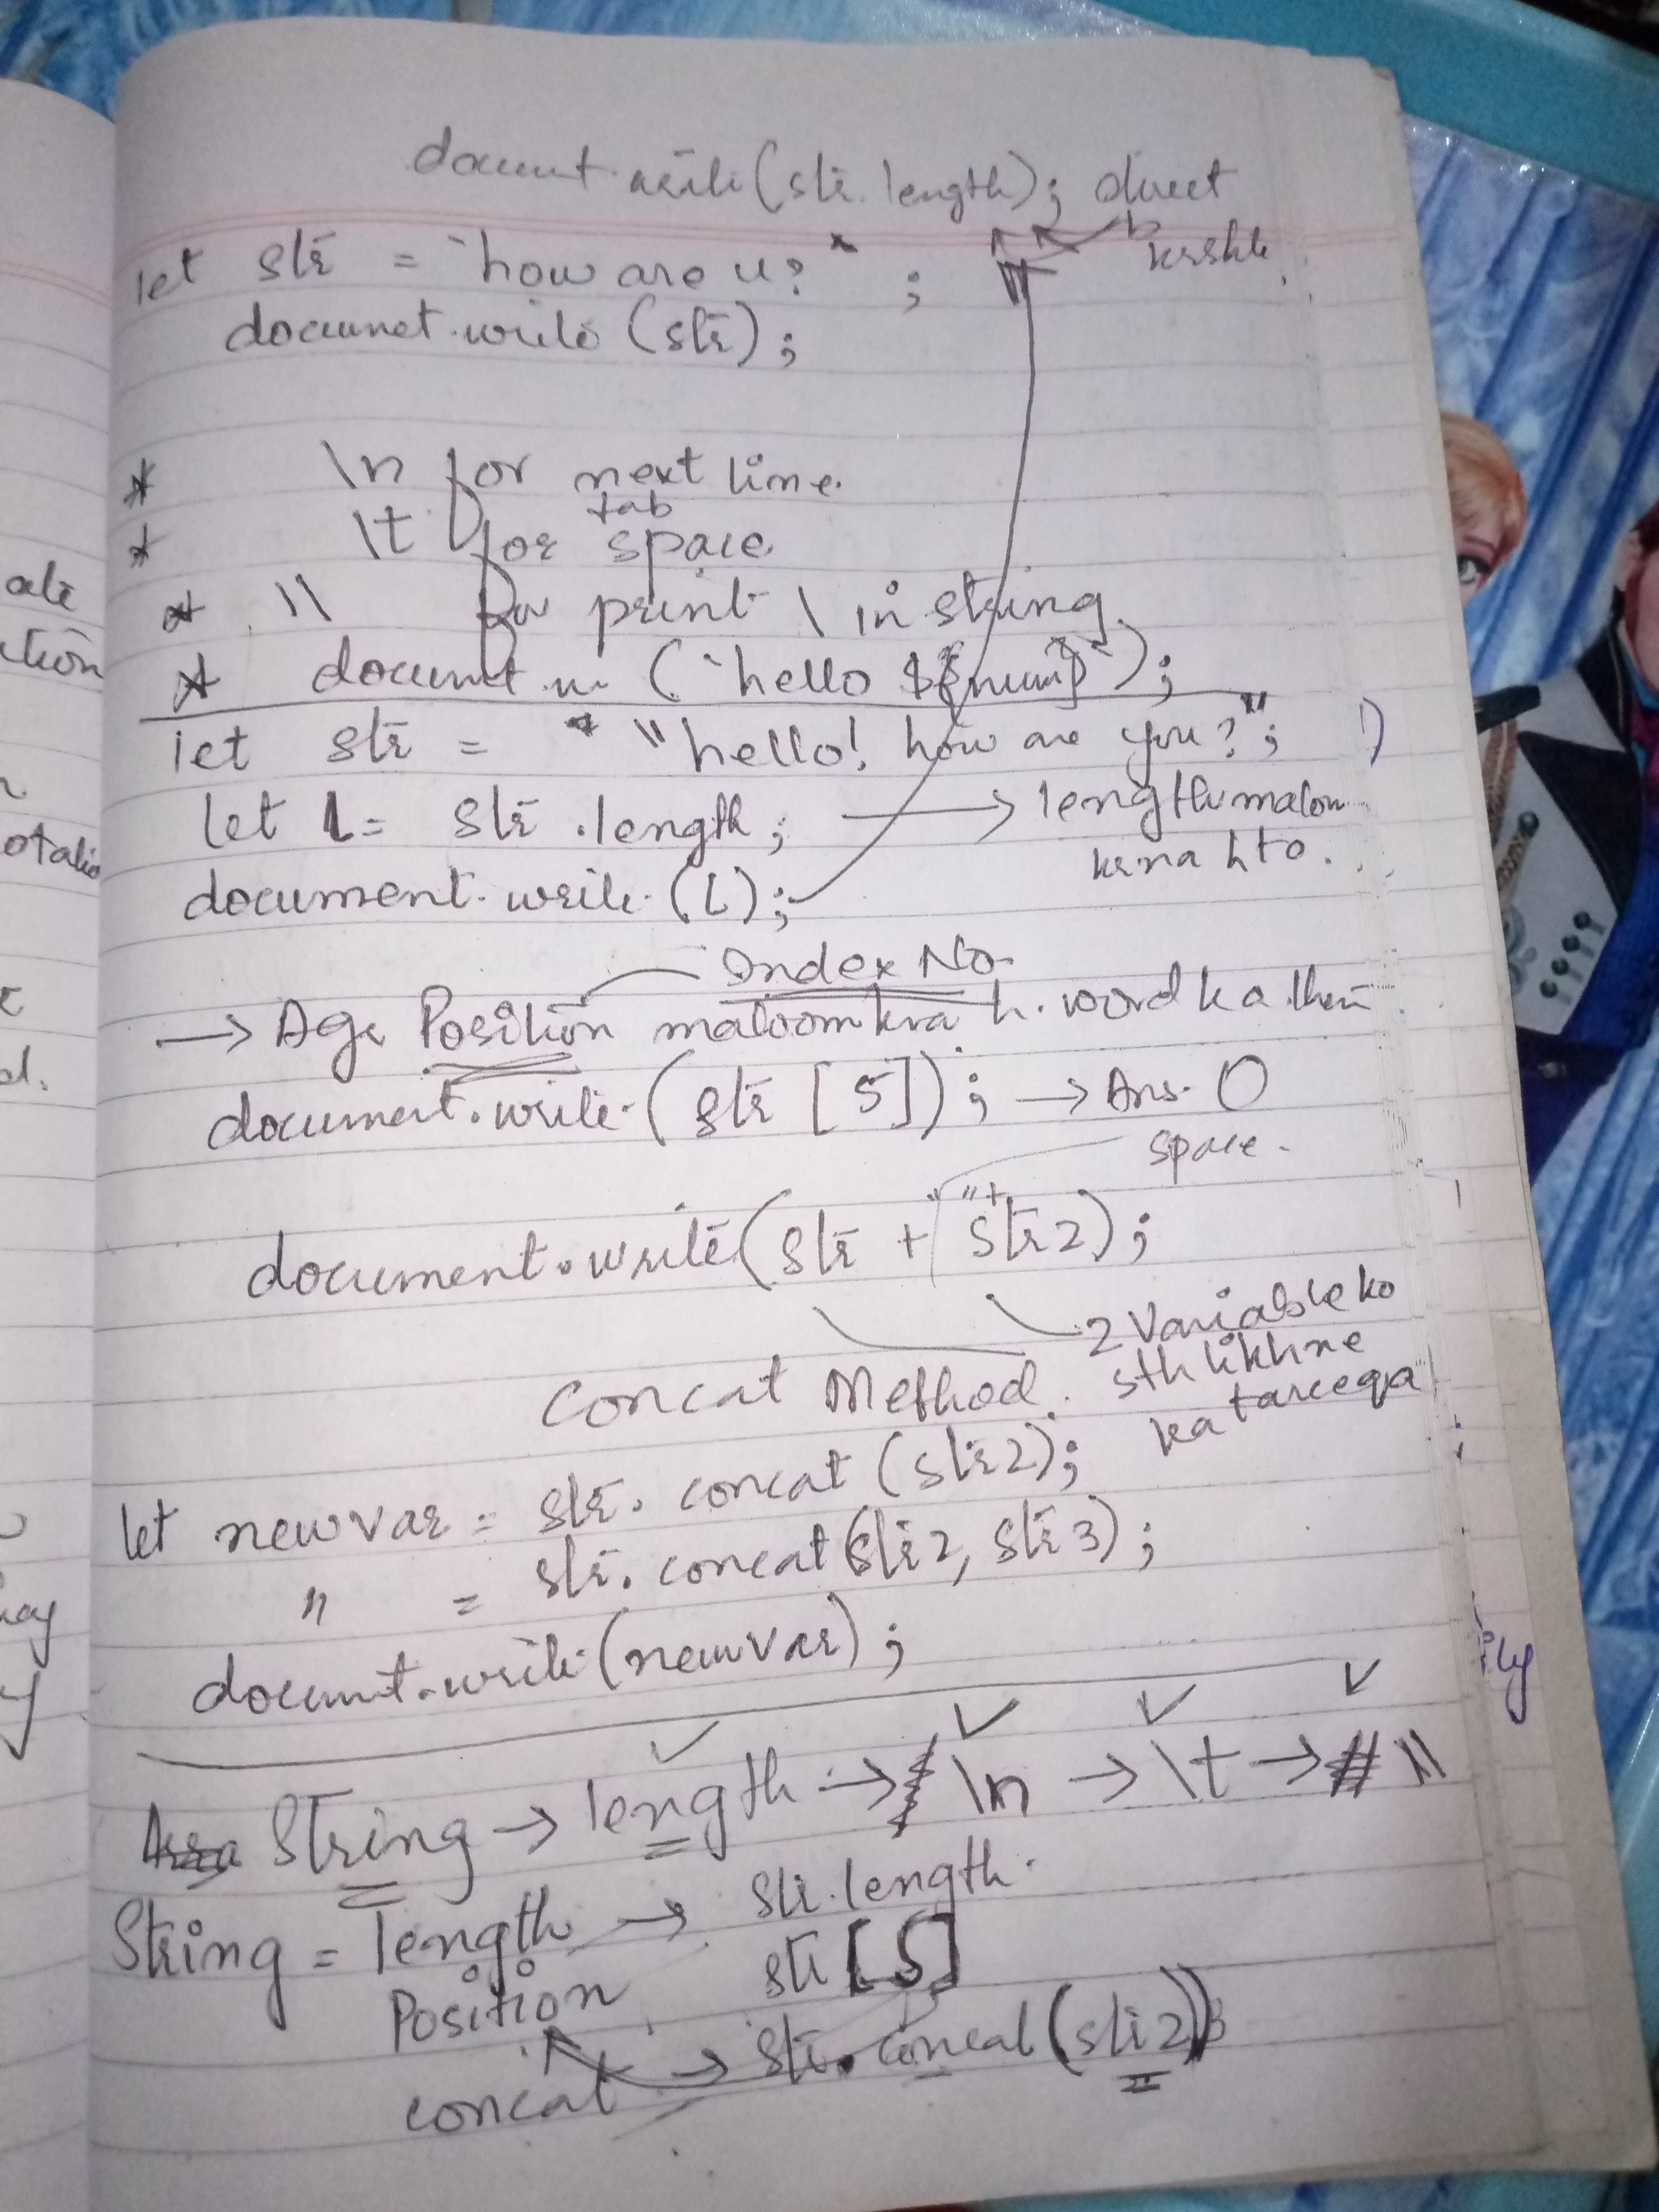 document.write(str.length); direct
krskte
let str = `how are u?` ;
documet.write (str);
* \n for next line.
tab
* \t for space
* \\ for print \ in string
* document.w (`hello ${num}`);
let str = "hello! how are you?";
let L = str .length; → length malom
krna h to.
document.write (L);
Index No.
→ Agr Position maloom krna h. word ka then
document.write (str [5]); → Ans. O
space.
" "+
document.write (str + str2);
2 Variable ko
sth likhne
ka tareeqa
Concat Method.
let newvar = str. concat (str2);
" = str. concat (str2, str3);
documnt.write (newvar);
String → length → \n → \t → \\
String = length → str.length.
Position str [5]
concat → str. concat (str2)
ate
ction